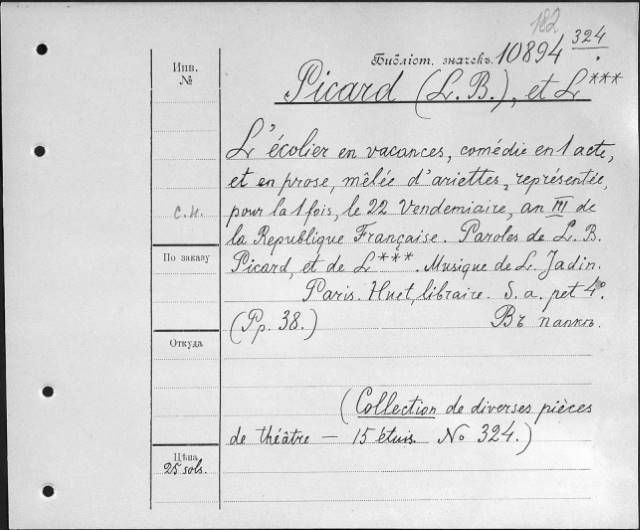 182
Библіот. значекъ. 10894 324.
Инв. №
Picard (L. B.), et L***
L'écolier en vacances, comédie en 1 acte,
et en prose, mêlée d'ariettes, représentée,
с.н. pour la 1 fois, le 22 Vendemiaire, an III de
la Republique Française. Paroles de L. B.
По заказу
Picard, et de L***. Musique de L. Jadin.
Paris. Huet, libraire. S. a. pet 4º.
(Pp. 38.) Въ папкѣ.
Откуда
(Collection de diverses pièces
de théâtre — 15 étuis No 324.)
Цѣна
25 sols.